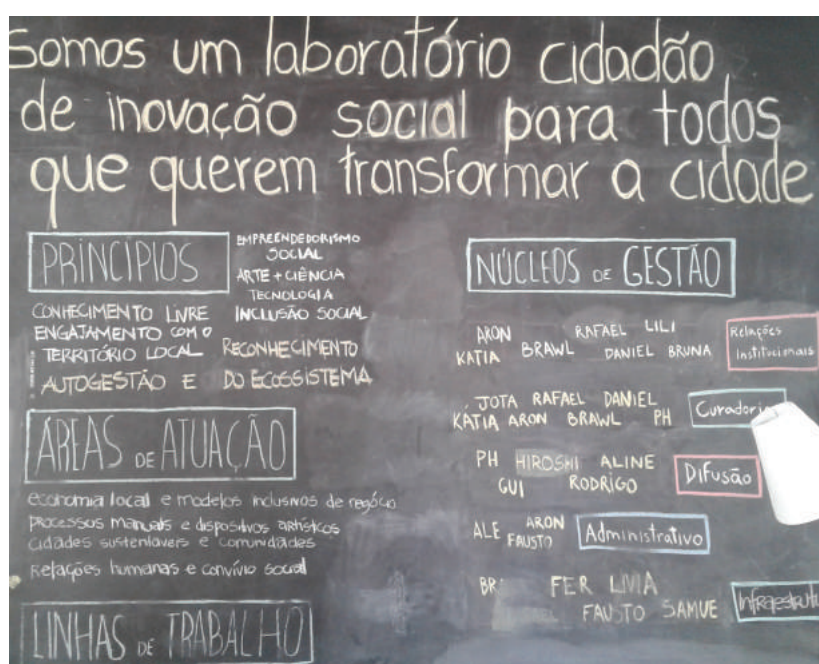 Somos um laboratório cidadão
de inovação social para todos
que querem transformar a cidade
PRINCÍPIOS
EMPREENDEDORISMO
SOCIAL
ARTE + CIÊNCIA
TECNOLOGIA
INCLUSÃO SOCIAL
CONHECIMENTO LIVRE
ENGAJAMENTO COM O
TERRITÓRIO LOCAL
AUTOGESTÃO E
RECONHECIMENTO
DO ECOSSISTEMA
ÁREAS DE ATUAÇÃO
economia local e modelos inclusivos de negócio
processos manuais e dispositivos artísticos
cidades sustentáveis e comunidades
Relações humanas e convívio social
LINHAS DE TRABALHO
NÚCLEOS DE GESTÃO
ARON RAFAEL LILI
KATIA BRAWL DANIEL BRUNA
Relações
Institucionais
JOTA RAFAEL DANIEL
KÁTIA ARON BRAWL PH
PH HIROSHI ALINE
GUI RODRIGO
Difusão
ALE ARON
FAUSTO
Administrativo
FER LIVIA
FAUSTO SAMUE